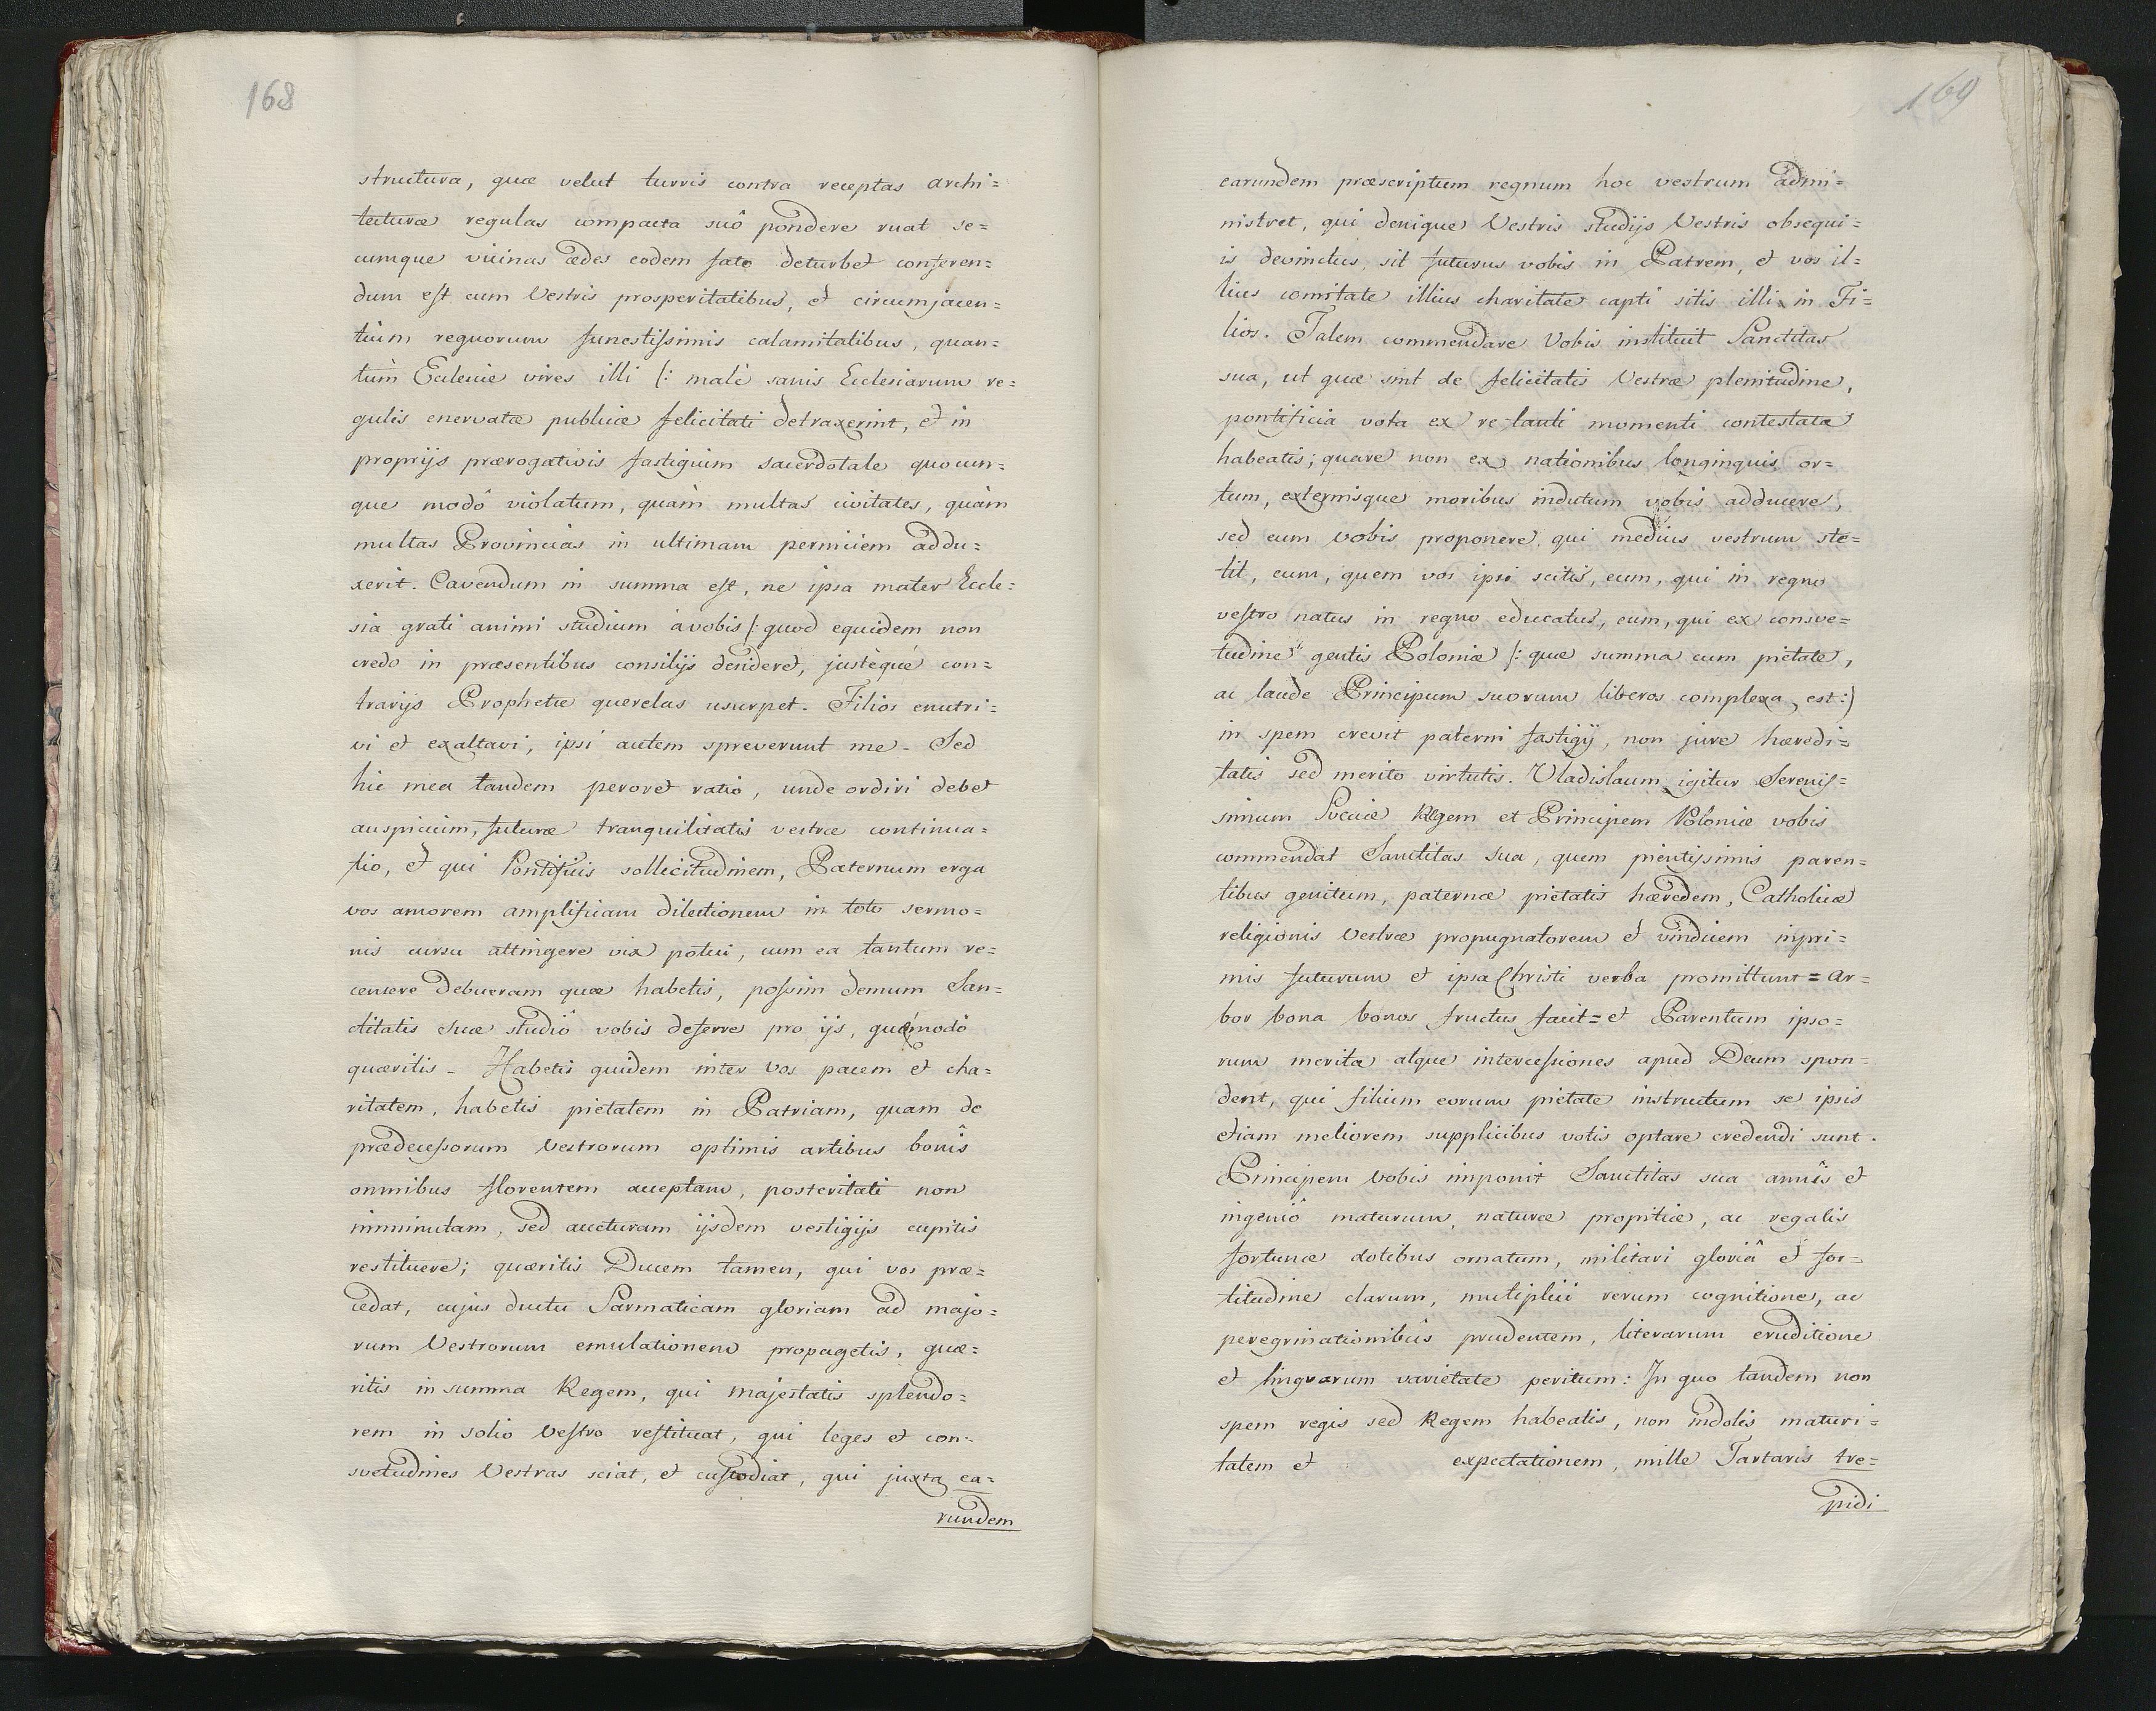 168
structura, quæ velut turris contra receptas archi=
tecturæ regulas compacta suô pondere ruat se=
cumque vicinas ædes eodem fato deturbet conferen=
dum est cum Vestris prosperitatibus, et circumjacen=
tium regnorum funestissimis calamitatibus, quan=
tùm Eclesiæ vires illi (: malè sanis Ecclesiarum re=
gulis enervatæ publicæ felicitati detraxerint, et in
proprijs prærogativis fastigium sacerdotale quocun=
que modô violatum, quàm multas civitates, quàm
multas Provincias in ultimam perniciem addu=
xerit. Cavendum in summa est, ne ipsa mater Eccle=
sia grati animi studium à vobis (: quod equidem non
credo in præsentibus consilijs desideret, justèqué con=
trarijs Prophetæ querelas usurpet. Filios enutri=
vi et exaltavi, ipsi autem spreverunt me. Sed
hic mea tandem peroret ratio, unde ordiri debet
auspicium, futuræ tranquilitatis vestræ continua=
tio, et qui Pontificis sollicitudinem, Paternum erga
vos amorem amplificam dilectionem in toto sermo=
nis cursu attingere vix potui, cum ea tantum re=
censere debueram quæ habetis, possim demum San=
ctitatis suæ studiô vobis deferre pro ijs, quémodô
quæritis. Habetis quidem inter Vos pacem et cha=
ritatem, habetis pietatem in Patriam, quam de
prædecessorum Vestrorum optimis artibus bonîs
omnibus florentem acceptam, posteritati non
imminutam, sed aucturam ijsdem vestigijs cupitis
restituere; quæritis Ducem tamen, qui vos præ=
cedat, cujus ductu Sarmaticam gloriam ad majo=
rum Vestrorum emulationem propagetis, quæ=
ritis in summa Regem, qui majestatis splendo=
rem in solio Vestro restituat, qui leges et con=
svetudines Vestras sciat, et custodiat, qui juxta ea=
rundem
169
earundem præscriptum regnum hoc vestrum admi=
nistret, qui denique Vestris studijs Vestris obsequi=
is devinctus, sit futurus vobis in Patrem, et vos il=
lius comitate illius charitate capti sitis illi in Fi=
lios. Talem commendare Vobis instituit Sanctitas
sua, ut quæ sint de felicitatis Vestræ plenitudine,
pontificia vota ex re tanti momenti contestata
habeatis; quare non ex nationibus longinquis or=
tum, externisque moribus indutum vobis adducere,
sed eum vobis proponere, qui medius vestrum ste=
tit, eum, quem vos ipsi scitis, eum, qui in regno
vestro natus in regno educatus, eum, qui ex consve=
tudine gentis Poloniæ (: quæ summa cum pietate,
ac laude Principum suorum liberos complexa est :)
in spem crevit paterni fastigij, non jure hæredi=
tatis sed merito virtutis. Vladislaum igitur Serenis=
simum Sveciæ Regem et Principem Poloniæ vobis
commendat Sanctitas sua, quem pientissimis paren=
tibus genitum, paternæ pietatis hæredem, Catholicæ
religionis Vestræ propugnatorem et vindicem inpri=
mis futurum et ipsa Christi verba promittunt = ar=
bor bona bonos fructus facit = et Parentum ipso=
rum merita atque intercessiones apud Deum spon=
dent, qui filium eorum pietate instructum se ipsis
etiam meliorem supplicibus votis optare credendi sunt.
Principem vobis imponit Sanctitas sua annîs et
ingeniô maturum, naturæ propitiæ, ac regalis
fortunæ dotibus ornatum, militari gloriâ et for=
titudine clarum, mutiplici rerum cognitione, ac
peregrinationibus prudentem, literarum eruditione
et lingvarum varietate peritum: In quo tandem non
spem regis sed Regem habeatis, non indolis maturi=
tatem et expectationem, mille Tartaris tre=
pidi